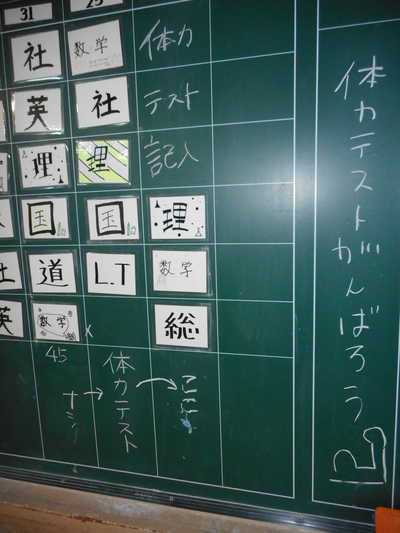 31
社
数学
体力
英
社
テスト
理
理
記入
国
国
理
道
L.T
数学
英
数学
x
総
45
ナシ
体力テスト
体力テストがんばろう